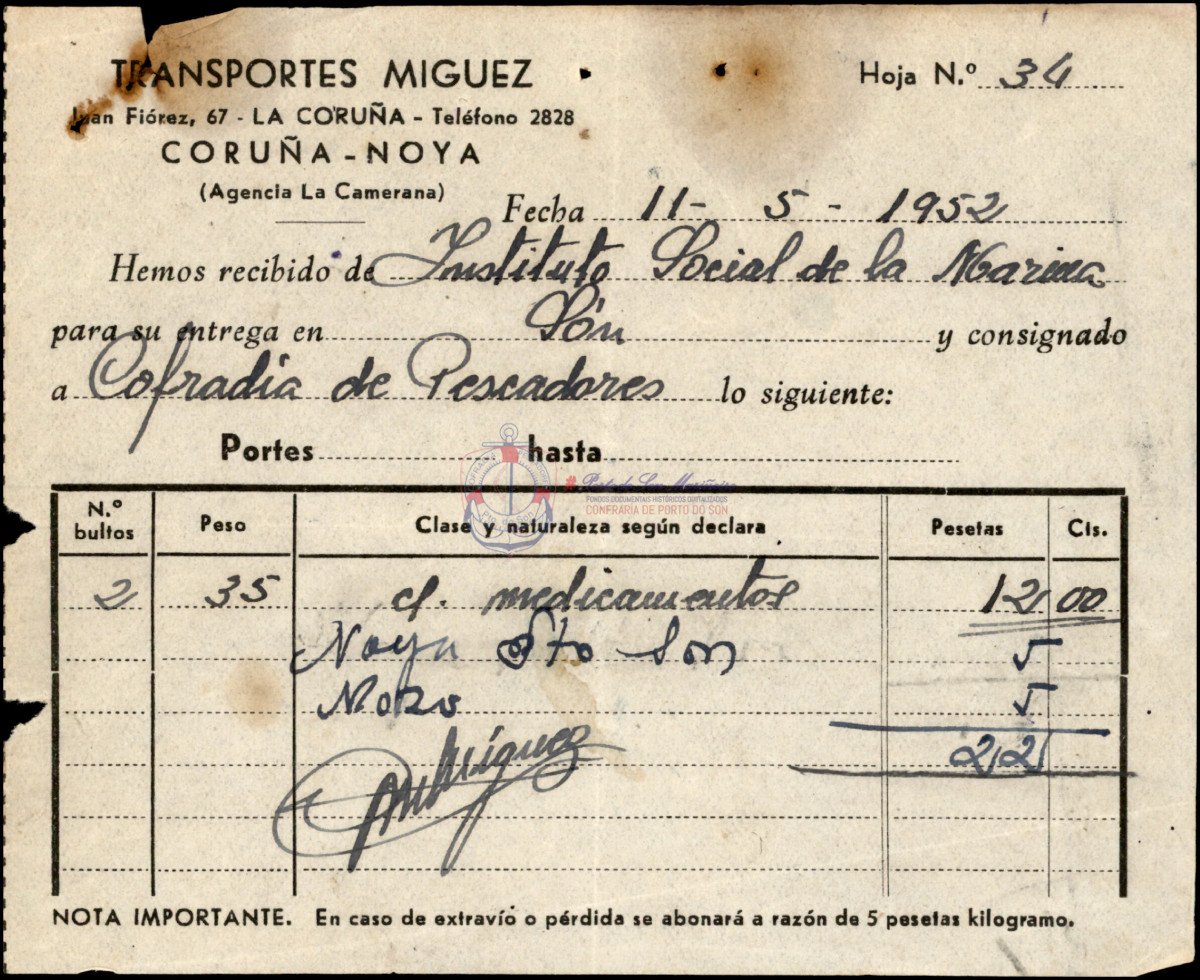 TRANSPORTES MIGUEZ
Hoja N.º 34
Juan Flórez, 67 - LA CORUÑA - Teléfono 2828
CORUÑA - NOYA
(Agencia La Camerana)
Fecha 11 - 5 - 1952
Hemos recibido de Instituto Social de la Marina
para su entrega en Són y consignado
a Cofradía de Pescadores lo siguiente:
Portes hasta
Porto do Son Mariñeiro
FONDOS DOCUMENTAIS HISTÓRICOS DIXITALIZADOS
CONFRARÍA DE PORTO DO SON
N.º bultos Peso Clase y naturaleza según declara Pesetas Cts.
2 35 c/. medicamentos 12 00
Noya Pto Son 5
Mozo 5
22
Miguez
NOTA IMPORTANTE. En caso de extravío o pérdida se abonará a razón de 5 pesetas kilogramo.